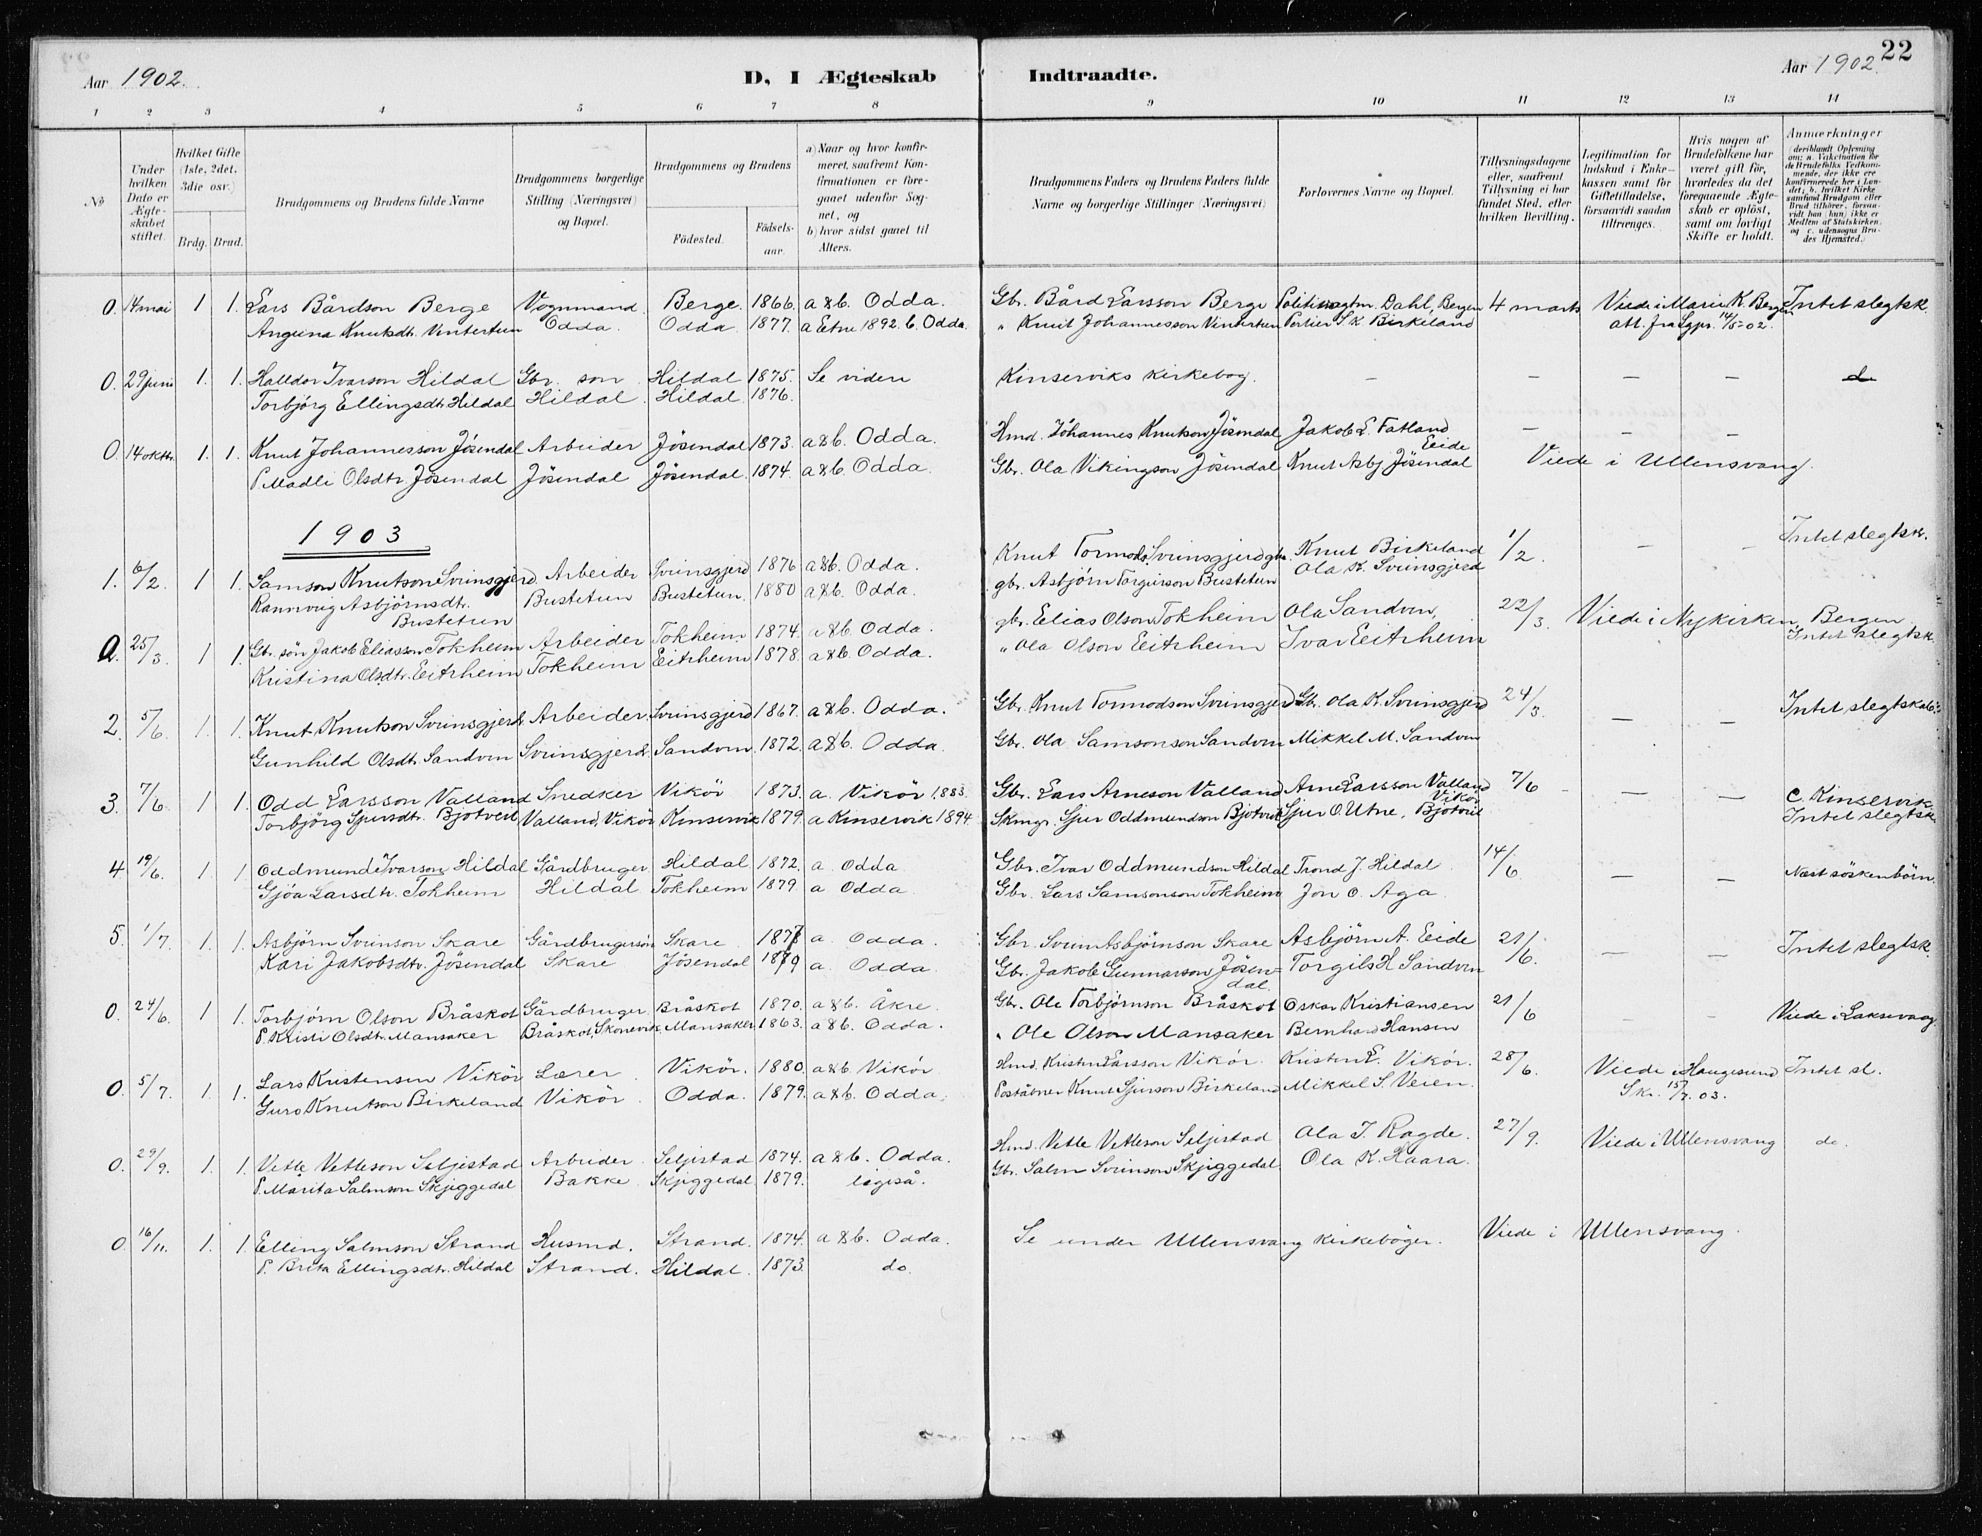 22
Aar 1902. D, I Ægteskab Indtraadte. Aar 1902.
1 2 3 4 5 6 7 8 9 10 11 12 13 14
No
Under hvilken Dato er Ægteskabet stiftet.
Hvilket Gifte (1ste, 2det, 3die osv.)
Brdg. Brud.
Brudgommens og Brudens fulde Navne
Brudgommens borgerlige Stilling (Næringsvei) og Bopæl.
Brudgommens og Brudens
Födested. Födselsaar.
a) Naar og hvor konfirmeret, saafremt Konfirmationen er foregaaet udenfor Sognet, og
b) hvor sidst gaaet til Alters.
Brudgommens Faders og Brudens Faders fulde Navne og borgerlige Stillinger (Næringsvei)
Forlovernes Navne og Bopæl.
Tillysningsdagene eller, saafremt Tillysning ei har fundet Sted, efter hvilken Bevilling.
Legitimation for Indskud i Enkekassen samt for Giftetilladelse, forsaavidt saadan tiltrænges.
Hvis nogen af Brudefolkene har været gift før, hvorledes da det foregaaende Ægteskab er oplöst, samt om lovligt Skifte er holdt.
Anmærkninger
deriblandt Oplysning om: a. Vakcination for de Brudefolks Vedkommende, der ikke ere konfirmerede her i Landet; b. hvilket Kirkesamfund Brudgom eller Brud tilhører, forsaavidt han (hun) ikke er Medlem af Statskirken, og c. udensogns Brudes Hjemsted.)
0. 14 mai 1 1. Lars Bårdson Berge Vognmand Berge 1866. a&b. Odda. Gbr. Bård Larsson Berge Dahl, Bergen 4 marts Viede i Marie K. Bergen Intet slegtsk.
Angina Knutsdt. Vintertun Odda. Odda 1877. a Etne 1892. b. Odda. " Knut Johannesson Vintertun Portier S K Birkeland att. fra Sgpr. 14/5-02.
0. 29 juni 1. 1. Halldor Ivarson Hildal Gbr. son Hildal 1875. Se videre Kinserviks kirkebog. — — — — do
Torbjörg Ellingsdtr Hildal Hildal. Hildal. 1876.
0. 14 oktbr. 1. 1. Knut Johannesson Jösendal Arbeider Jösendal 1873. a&b. Odda. Hmd. Johannes Knutson Jösendal Jakob L. Fatland Eide — — —
P. Madli Olsdtr Jösendal Jösendal Jösendal. 1874. a&b. Odda. Gbr. Ola Vikingson Jösendal Knut Asbj Jösendal Viede i Ullensvang.
1903
1. 6/2 1 1. Samson Knutson Svinsgjerd Arbeider Svinsgjerd 1876 a&b. Odda. Knut Tormods. Svinsgjerd gbr. Knut Birkeland 1/2 — — Intet slegtsk.
Rannveig Asbjörnsdt. Bustetun Bustetun Bustetun. 1880 a&b. Odda. gbr. Asbjörn Torgeirson Bustetun Ola K. Svinsgjerd
0. 25/3. 1 1. Gbr. sön Jakob Eliasson Tokheim Arbeider Tokheim 1874. a&b. Odda. gbr. Elias Olson Tokheim Ola Sandven, 22/3. Viede i Nykirken, Bergen
Kristina Olsdtr. Eitrheim Tokheim Eitrheim 1878. a&b. Odda. " Ola Olson Eitrheim Ivar Eeitrheim Intet slegtsk.
2. 5/6. 1. 1. Knut Knutson Svinsgjerd Arbeider. Svinsgjerd 1867. a&b. Odda. Gbr. Knut Tormodson Svinsgjerd Gbr. Ola K. Svinsgjerd 24/3. — — Intet slegtskab.
Gunhild Olsdt. Sandven Svinsgjerd. Sandven 1872. a&b. Odda. Gbr. Ola Samsonson Sandven Mikkel M. Sandven
3. 7/6 1 1. Odd Larsson Valland Snedker Vikör 1873. a. Vikör 1883. Gbr. Lars Arneson Valland Arne Larsson Valland Vikör 7/6 — — c. Kinservik
Torbjörg Sjursdt. Bjotveit Valland, Vikör Kinservik 1879. a Kinservik 1894. Skmgr. Sjur Oddmundson Bjotveit Sjur O. Utne, Bjotveit Intet slegtsk.
4 19/6. 1 1 Oddmund Ivarson Hildal Gårdbruger Hildal 1872. a. Odda Gbr. Ivar Oddmundson Hildal Trond J. Hildal 14/6 — — Næstsöskenbörn.
Gjöa Larsdtr. Tokheim Hildal Tokheim 1879. a Odda Gbr. Lars Samsonson Tokheim Jon O. Aga
5. 1/7. 1. 1. Asbjörn Svinson Skare Gårdbrugersön Skare 1873 a. Odda. Gbr. Svein Asbjörnson Skare Asbjörn A. Eide 21/6. — — Intet slegtsk.
Kari Jakobsdtr. Jösendal Skare Jösendal 1879 a. Odda. Gbr. Jakob Gunnarson Jösendal. Torgils H Sandven
0. 24/6. 1 1. Torbjörn Olson Bråskot Gårdbruger Bråskot 1870. a&b. Åkre. Gbr. Ole Torbjörnson Bråskot Oskar Kristiansen 21/6 — — Viede i Laksevaag.
P. Kristi Olsdtr. Mansaker Bråskot, Skonevik Mansaker 1863. a&b. Odda. " Ole Olson Mansaker Bernhard Hansen
0. 5/7. 1. 1. Lars Kristensen Vikör Lærer Vikör. 1880. a&b. Vikör Hmd. Kristen Larsson Vikör. Kristen L. Vikör. 28/6. Viede i Haugesund Intet sl.
Guro Knutson Birkeland Vikör Odda. 1879. a&b. Odda. Poståbner Knut Sjurson Birkeland Mikkel S. Veien. Skr. 15/7. 03.
0. 29/9. 1. 1. Vetle Vetleson Seljestad Arbeider Seljestad 1874. a&b. Odda. Hmd. Vetle Vetleson Seljestad Ola T. Ragde. 27/9. Viede i Ullensvang do.
P. Marita Salmson Skjeggedal Bakke Skjeggedal 1879. ligeså. Gbr. Salm Svinson Skjeggedal Ola K. Haara.
0. 16/11. 1. 1. Elling Salmson Strand Husmd. Strand. 1874. a&b. Odda. Se under Ullensvang kirkebøger. Viede i Ullensvang.
P. Brita Ellingsdtr. Hildal Strand. Hildal. 1873. do.